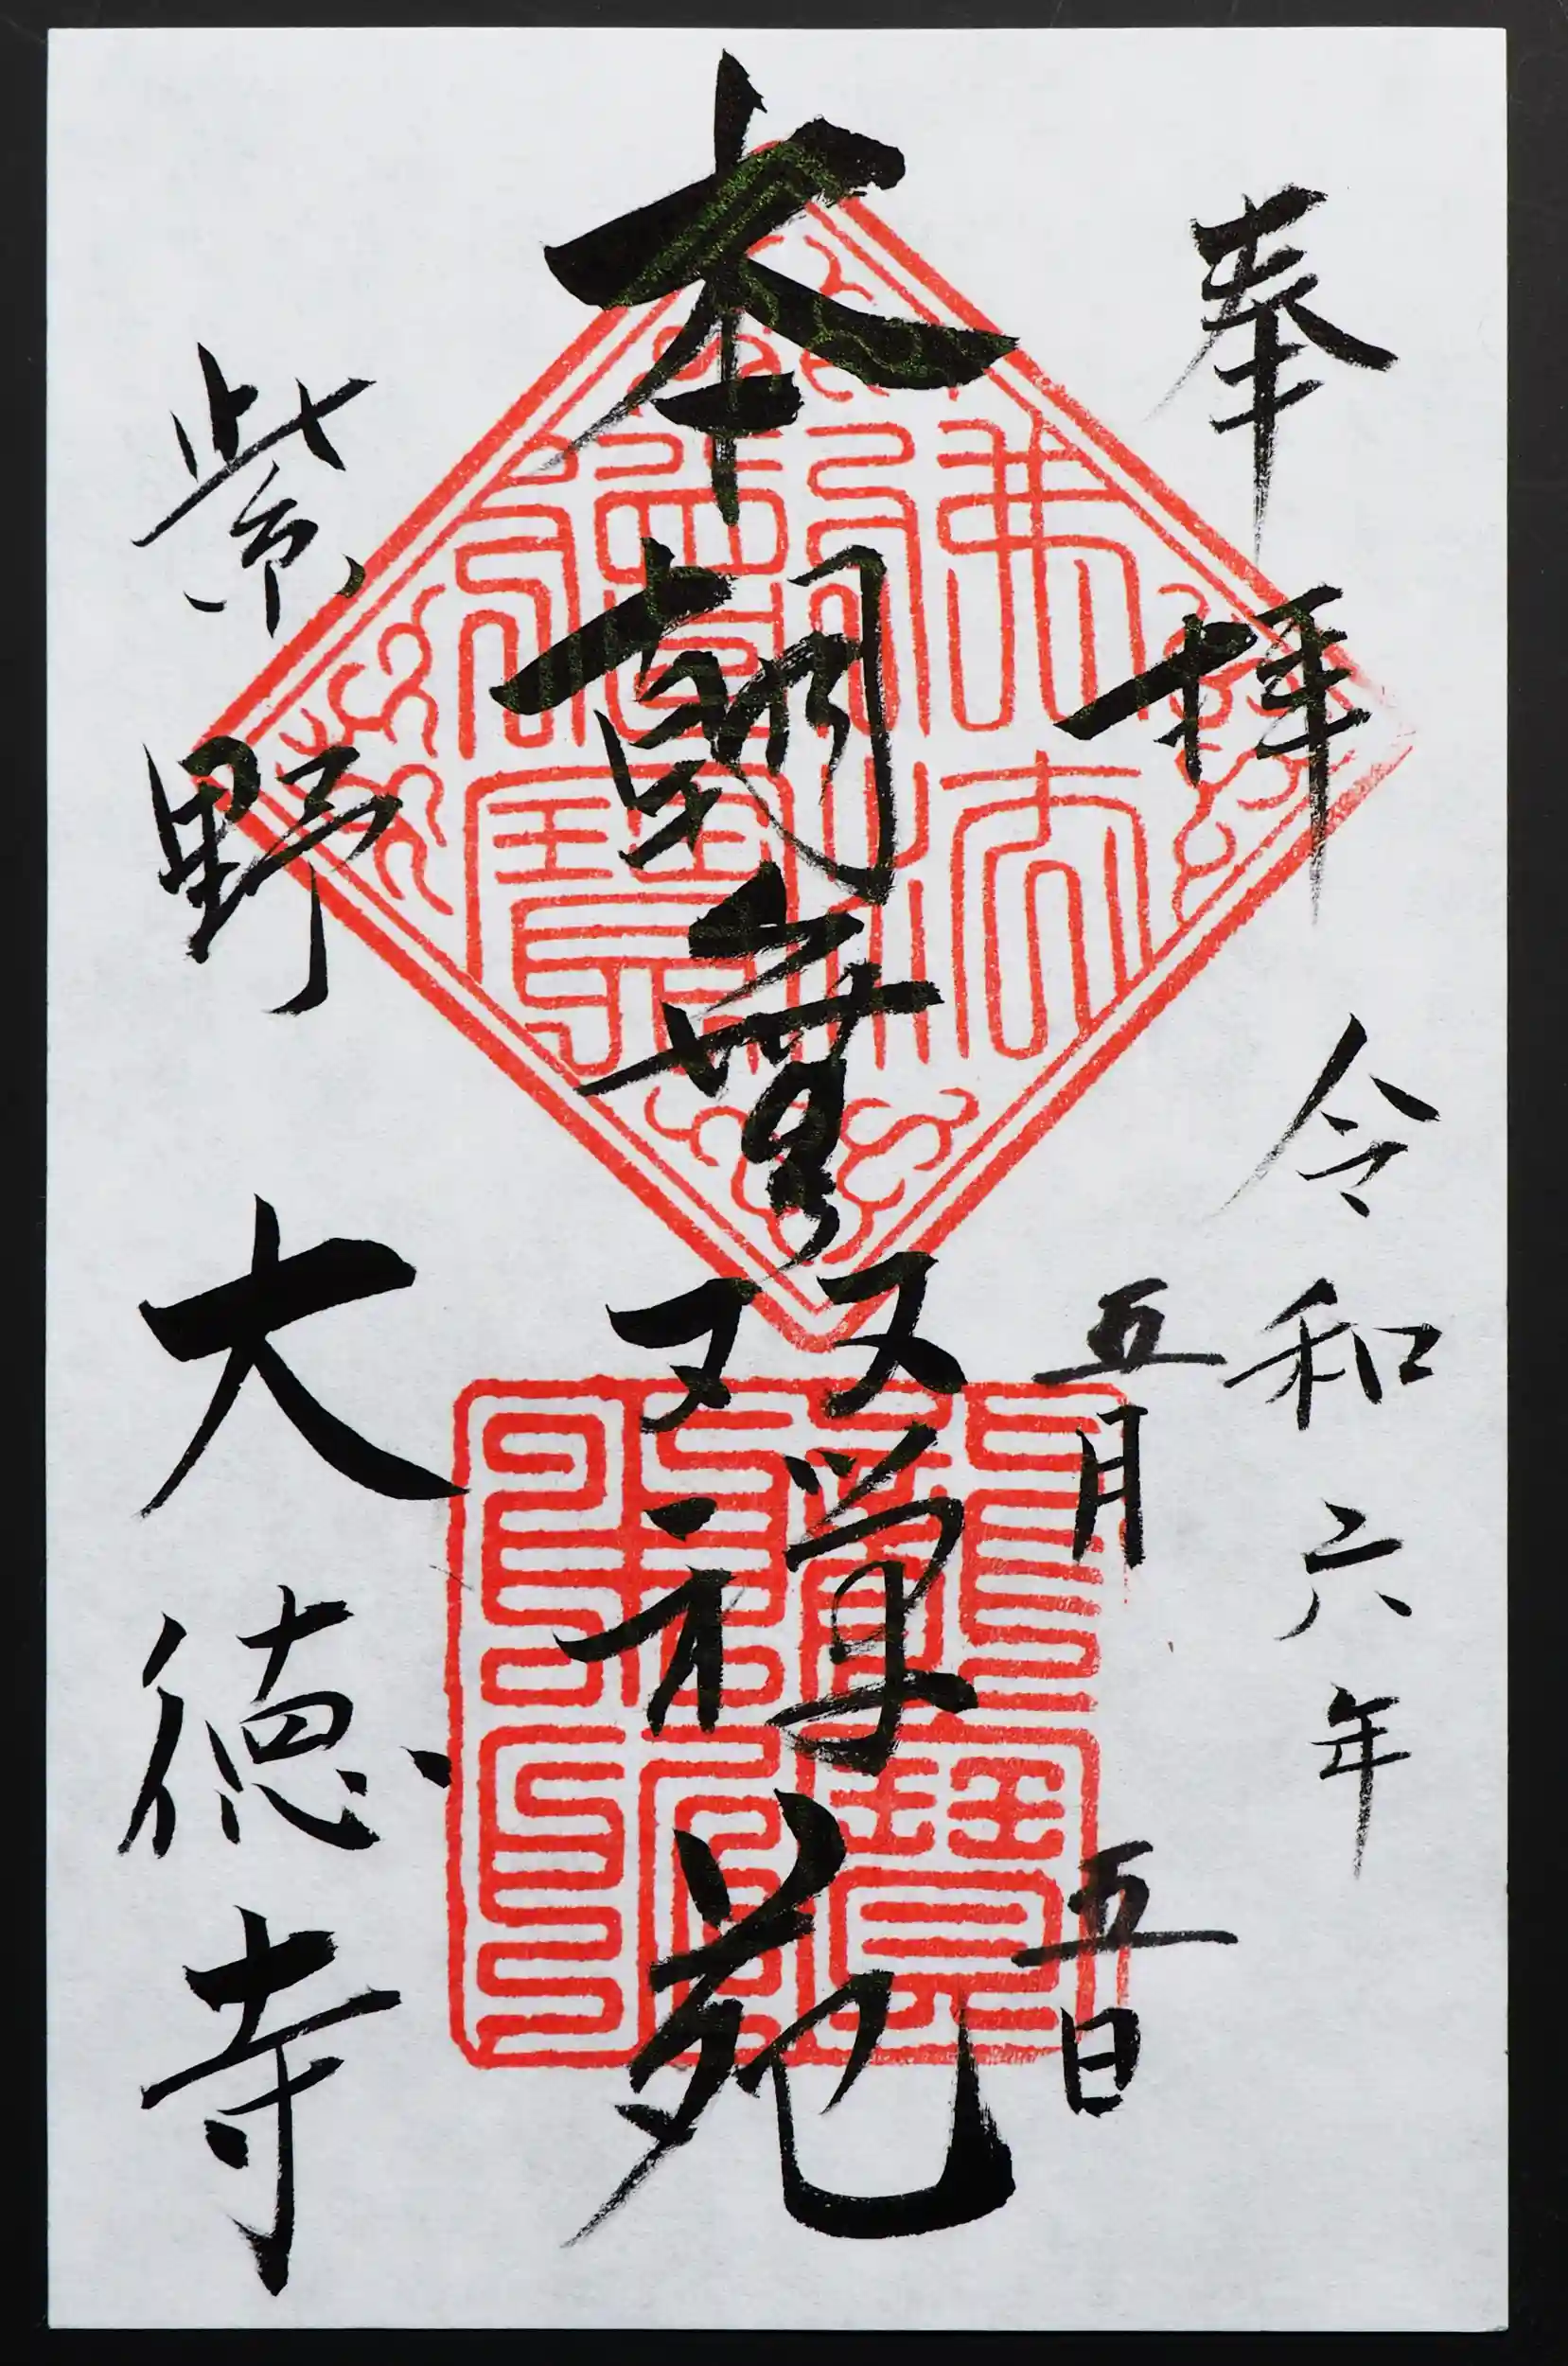 奉拝
令和六年
五月五日
本朝無双禅苑
紫野
大徳寺
佛法僧寳